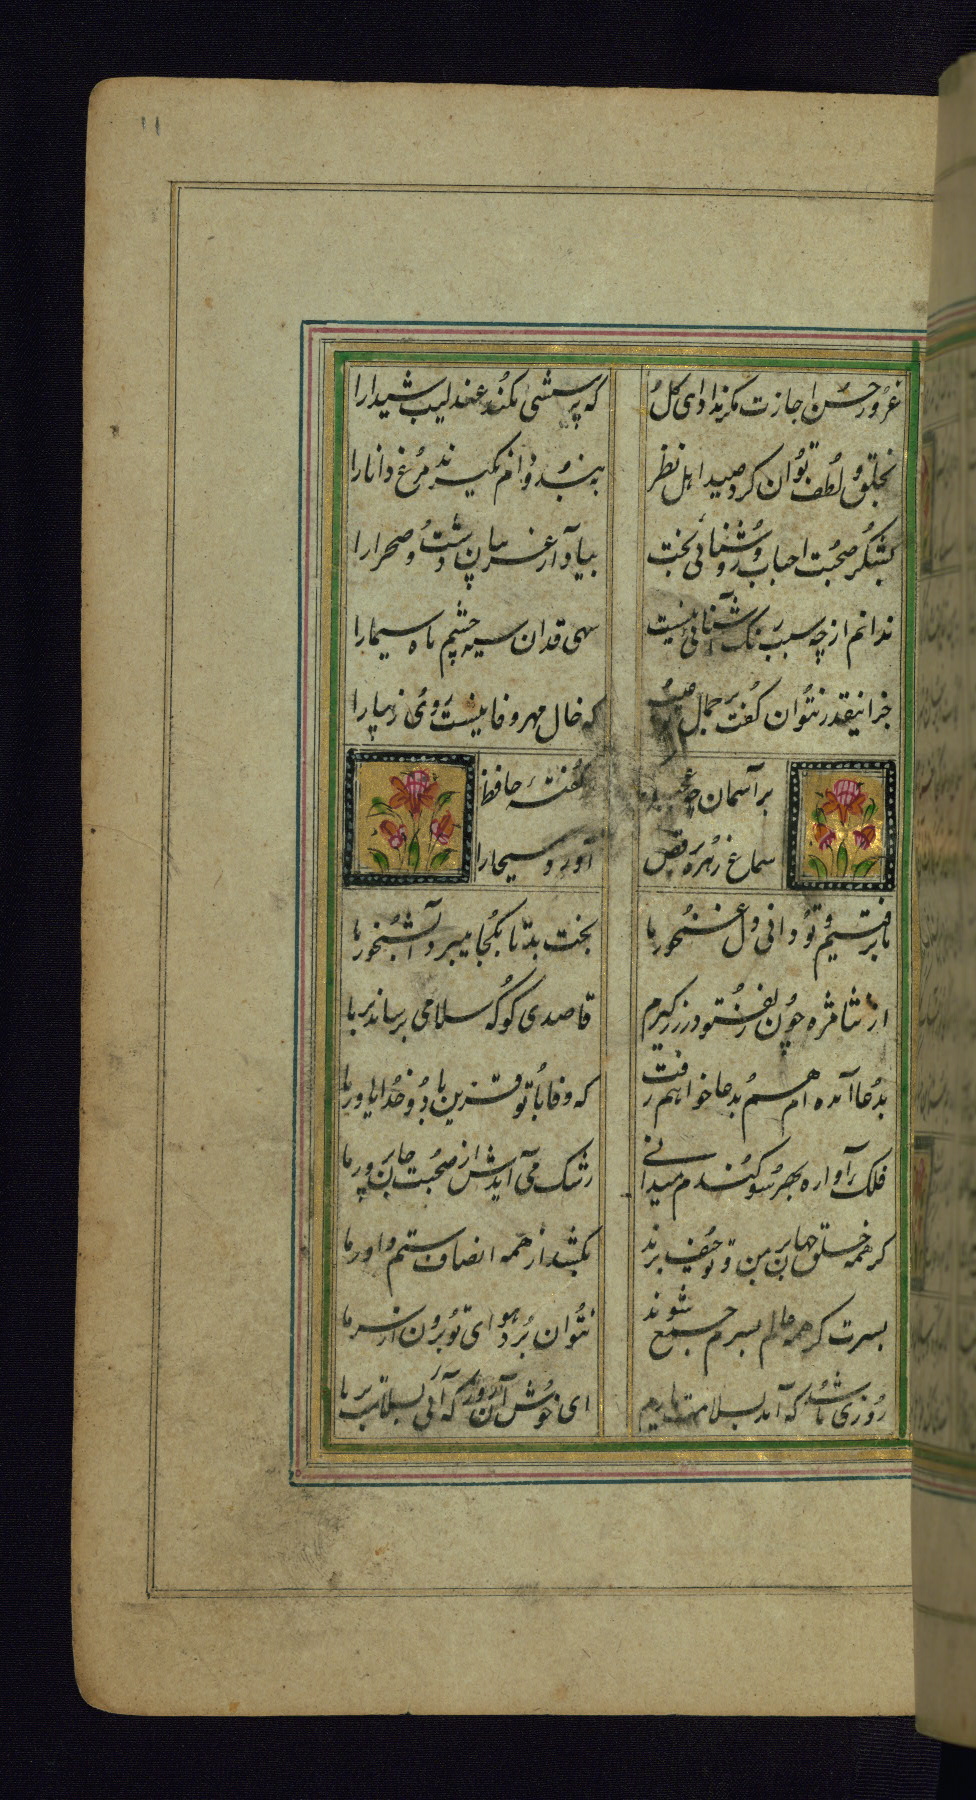 ۱۱
غرور حسن اجازت مکر نداد ای کل
که پرسشی نکند عندلیب شیدارا
بخلق و لطف توان کرد صید اهل نظر
به بند و دام نکیرند مرغ دانارا
بشکر صحبت احباب و روشنائی بخت
بیاد آر غریبان دشت و صحرارا
ندانم از چه سبب رنک آشنائی نیست
سهی قدان سیه چشم ماه سیمارا
جز اینقدر نتوان کفت بر جمال
که خال مهر و وفا نیست روی زیبارا
بر آسمان چه
کفته حافظ
سماع زهره برقص
آورد مسیحارا
ما برفتیم و تو دانی و دل غمخور ما
بخت بد تا بکجا میبرد آبشخور ما
از نثار مژه چون زلف تو در زر کیرم
قاصدی کو که سلامی برساند بر ما
بدعا آمده ام هم بدعا خواهم رفت
که وفا با تو قرین باد و خدا یاور ما
فلک آواره بهر سو کندم میدانی
رشک می آیدش از صحبت جان پرور ما
کر همه خلق جهان بر من و تو حیف برند
بکشد از همه انصاف ستم داور ما
بسرت کر همه عالم بسرم جمع شوند
نتوان برد هوای تو برون از سر ما
روزی باشد که آید بسلامت یارم
ای خوش آن روز که آئی بسلامت بر ما